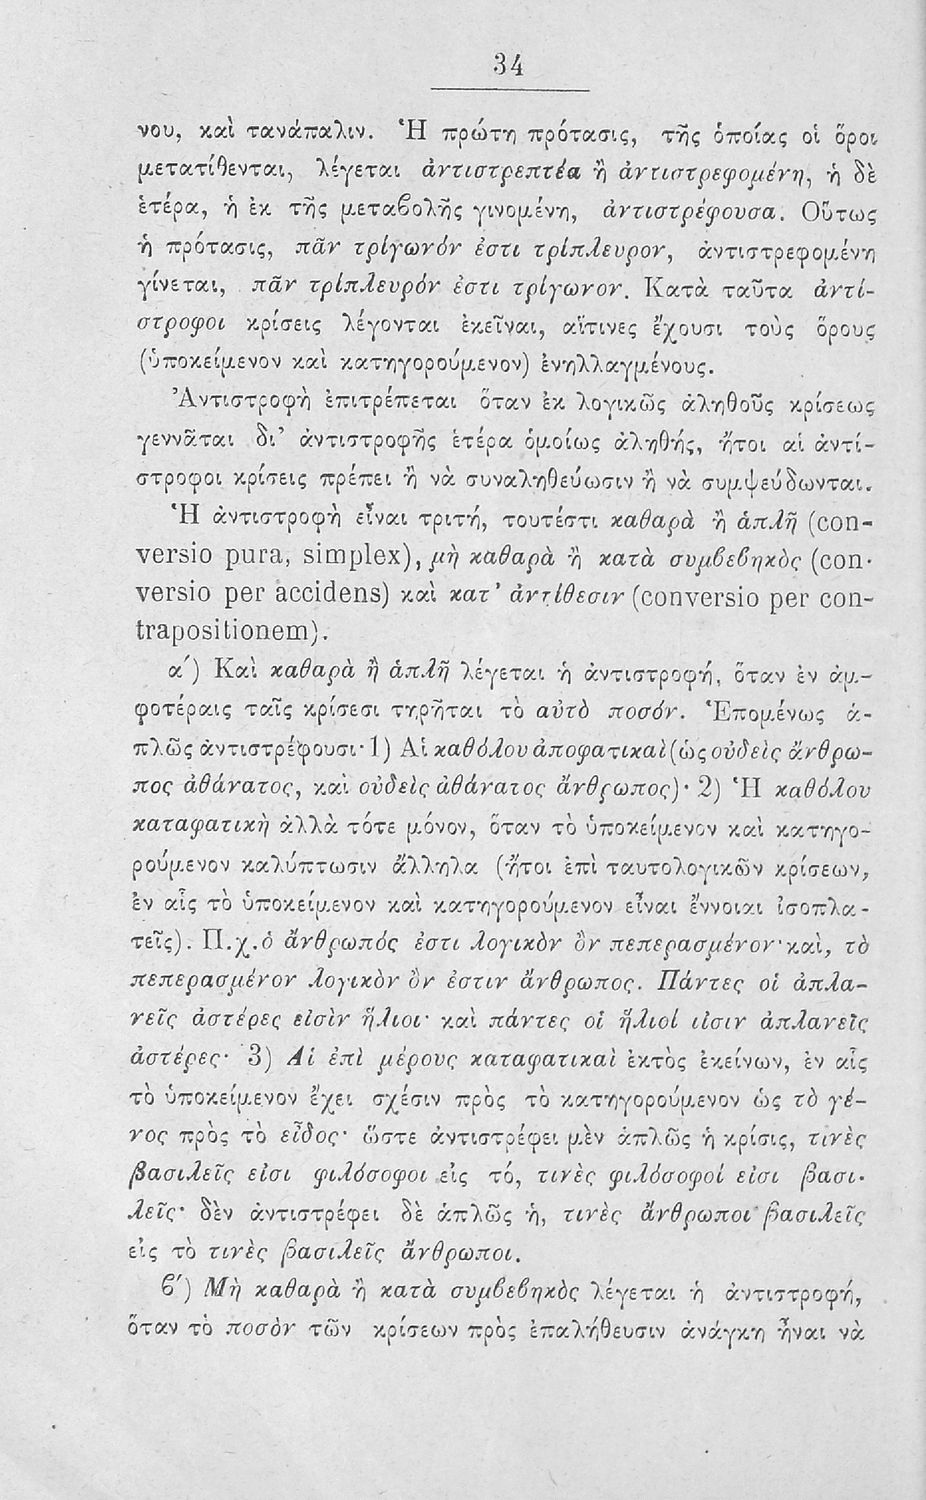 34
νου, καὶ τανάπαλιν. Ἡ πρώτη πρότασις, τῆς ὁποίας οἱ ὅροι
μετατίθενται, λέγεται ἀντιστρεπτέα ἢ ἀντιστρεφομένη, ἡ δὲ
ἑτέρα, ἡ ἐκ τῆς μεταβολῆς γινομένη, ἀντιστρέφουσα. Οὕτως
ἡ πρότασις, πᾶν τρίγωνόν ἐστι τρίπλευρον, ἀντιστρεφομένη
γίνεται, πᾶν τρίπλευρόν ἐστι τρίγωνον. Κατὰ ταῦτα ἀντί-
στροφοι κρίσεις λέγονται ἐκεῖναι, αἵτινες ἔχουσι τοὺς ὅρους
(ὑποκείμενον καὶ κατηγορούμενον) ἐνηλλαγμένους.
Ἀντιστροφὴ ἐπιτρέπεται ὅταν ἐκ λογικῶς ἀληθοῦς κρίσεως
γεννᾶται δι' ἀντιστροφῆς ἑτέρα ὁμοίως ἀληθής, ἤτοι αἱ ἀντί-
στροφοι κρίσεις πρέπει ἢ νὰ συναληθεύωσιν ἢ νὰ συμψεύδωνται.
Ἡ ἀντιστροφὴ εἶναι τριτή, τουτέστι καθαρὰ ἢ ἁπλῆ (con-
versio pura, simplex), μὴ καθαρὰ ἢ κατὰ συμβεβηκὸς (con-
versio per accidens) καὶ κατ' ἀντίθεσιν (conversio per con-
trapositionem).
α') Καὶ καθαρὰ ἢ ἁπλῆ λέγεται ἡ ἀντιστροφή, ὅταν ἐν ἀμ-
φοτέραις ταῖς κρίσεσι τηρῆται τὸ αὐτὸ ποσόν. Ἑπομένως ἁ-
πλῶς ἀντιστρέφουσι· 1) Αἱ καθόλου ἀποφατικαὶ (ὡς οὐδεὶς ἄνθρω-
πος ἀθάνατος, καὶ οὐδεὶς ἀθάνατος ἄνθρωπος)· 2) Ἡ καθόλου
καταφατικὴ ἀλλὰ τότε μόνον, ὅταν τὸ ὑποκείμενον καὶ κατηγο-
ρούμενον καλύπτωσιν ἄλληλα (ἤτοι ἐπὶ ταυτολογικῶν κρίσεων,
ἐν αἷς τὸ ὑποκείμενον καὶ κατηγορούμενον εἶναι ἔννοιαι ἰσοπλα-
τεῖς). Π.χ. ὁ ἄνθρωπός ἐστι λογικὸν ὂν πεπερασμένον· καὶ, τὸ
πεπερασμένον λογικὸν ὂν ἐστιν ἄνθρωπος. Πάντες οἱ ἀπλα-
νεῖς ἀστέρες εἰσὶν ἥλιοι· καὶ πάντες οἱ ἥλιοί εἰσιν ἀπλανεῖς
ἀστέρες· 3) Αἱ ἐπὶ μέρους καταφατικαὶ ἐκτὸς ἐκείνων, ἐν αἷς
τὸ ὑποκείμενον ἔχει σχέσιν πρὸς τὸ κατηγορούμενον ὡς τὸ γέ-
νος πρὸς τὸ εἶδος· ὥστε ἀντιστρέφει μὲν ἁπλῶς ἡ κρίσις, τινὲς
βασιλεῖς εἰσι φιλόσοφοι εἰς τό, τινὲς φιλόσοφοί εἰσι βασι-
λεῖς· δὲν ἀντιστρέφει δὲ ἁπλῶς ἡ, τινὲς ἄνθρωποι βασιλεῖς
εἰς τὸ τινὲς βασιλεῖς ἄνθρωποι.
β') Μὴ καθαρὰ ἢ κατὰ συμβεβηκὸς λέγεται ἡ ἀντιστροφή,
ὅταν τὸ ποσὸν τῶν κρίσεων πρὸς ἐπαλήθευσιν ἀνάγκη ἦναι νὰ